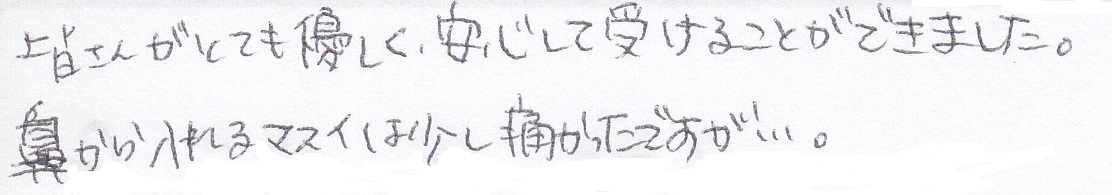 皆さんがとても優しく、安心して受けることができました。
鼻から入れるマスイは少し痛かったですが…。